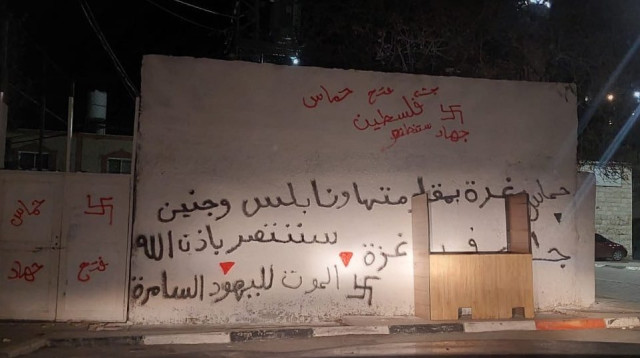 حماس فتح جنين
فلسطين
جهاد ستنتصر
حماس غزة بمقاومتها ونابلس وجنين
غزة ستنتصر باذن الله
الموت لليهود السامرة
حماس
جهاد
فتح